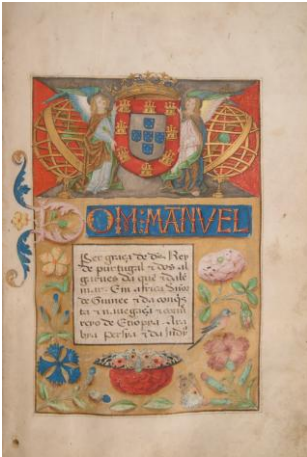 DOM: MANVEL
Per graça de ds Rey
de purtugal ⁊ dos al
garues da que ⁊ dale
mar. Em africa Snõr
de Guinee ⁊ da conq̃s
ta ⁊ nauegaçã ⁊ comer
cyo de Ethiopia Ara
bia persia ⁊ da Indya